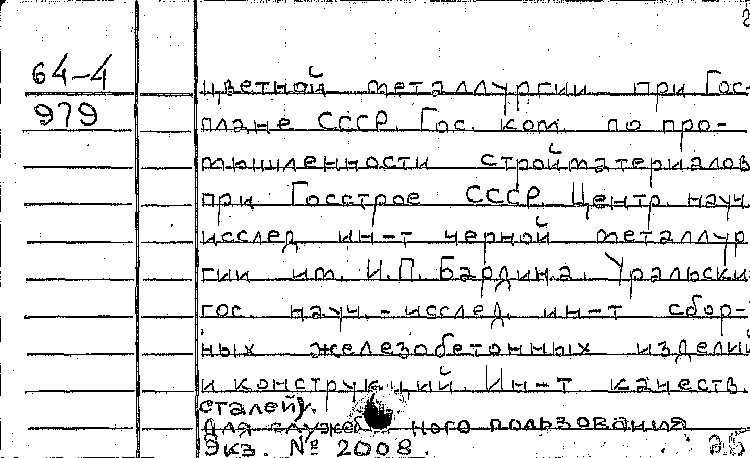 64-4
979
цветной металлургии при Гос-
плане СССР. Гос. ком. по про-
мышленности стройматериалов
при Госстрое СССР. Центр. науч.
исслед. ин-т черной металлур-
гии им. И.П. Бардина. Уральски
гос. науч.-исслед. ин-т сбор-
ных железобетонных изделий
и конструкций. Ин-т качеств.
сталей).
Для служебного пользования
Экз. № 2008.